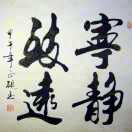 寧静
致遠
甲午年